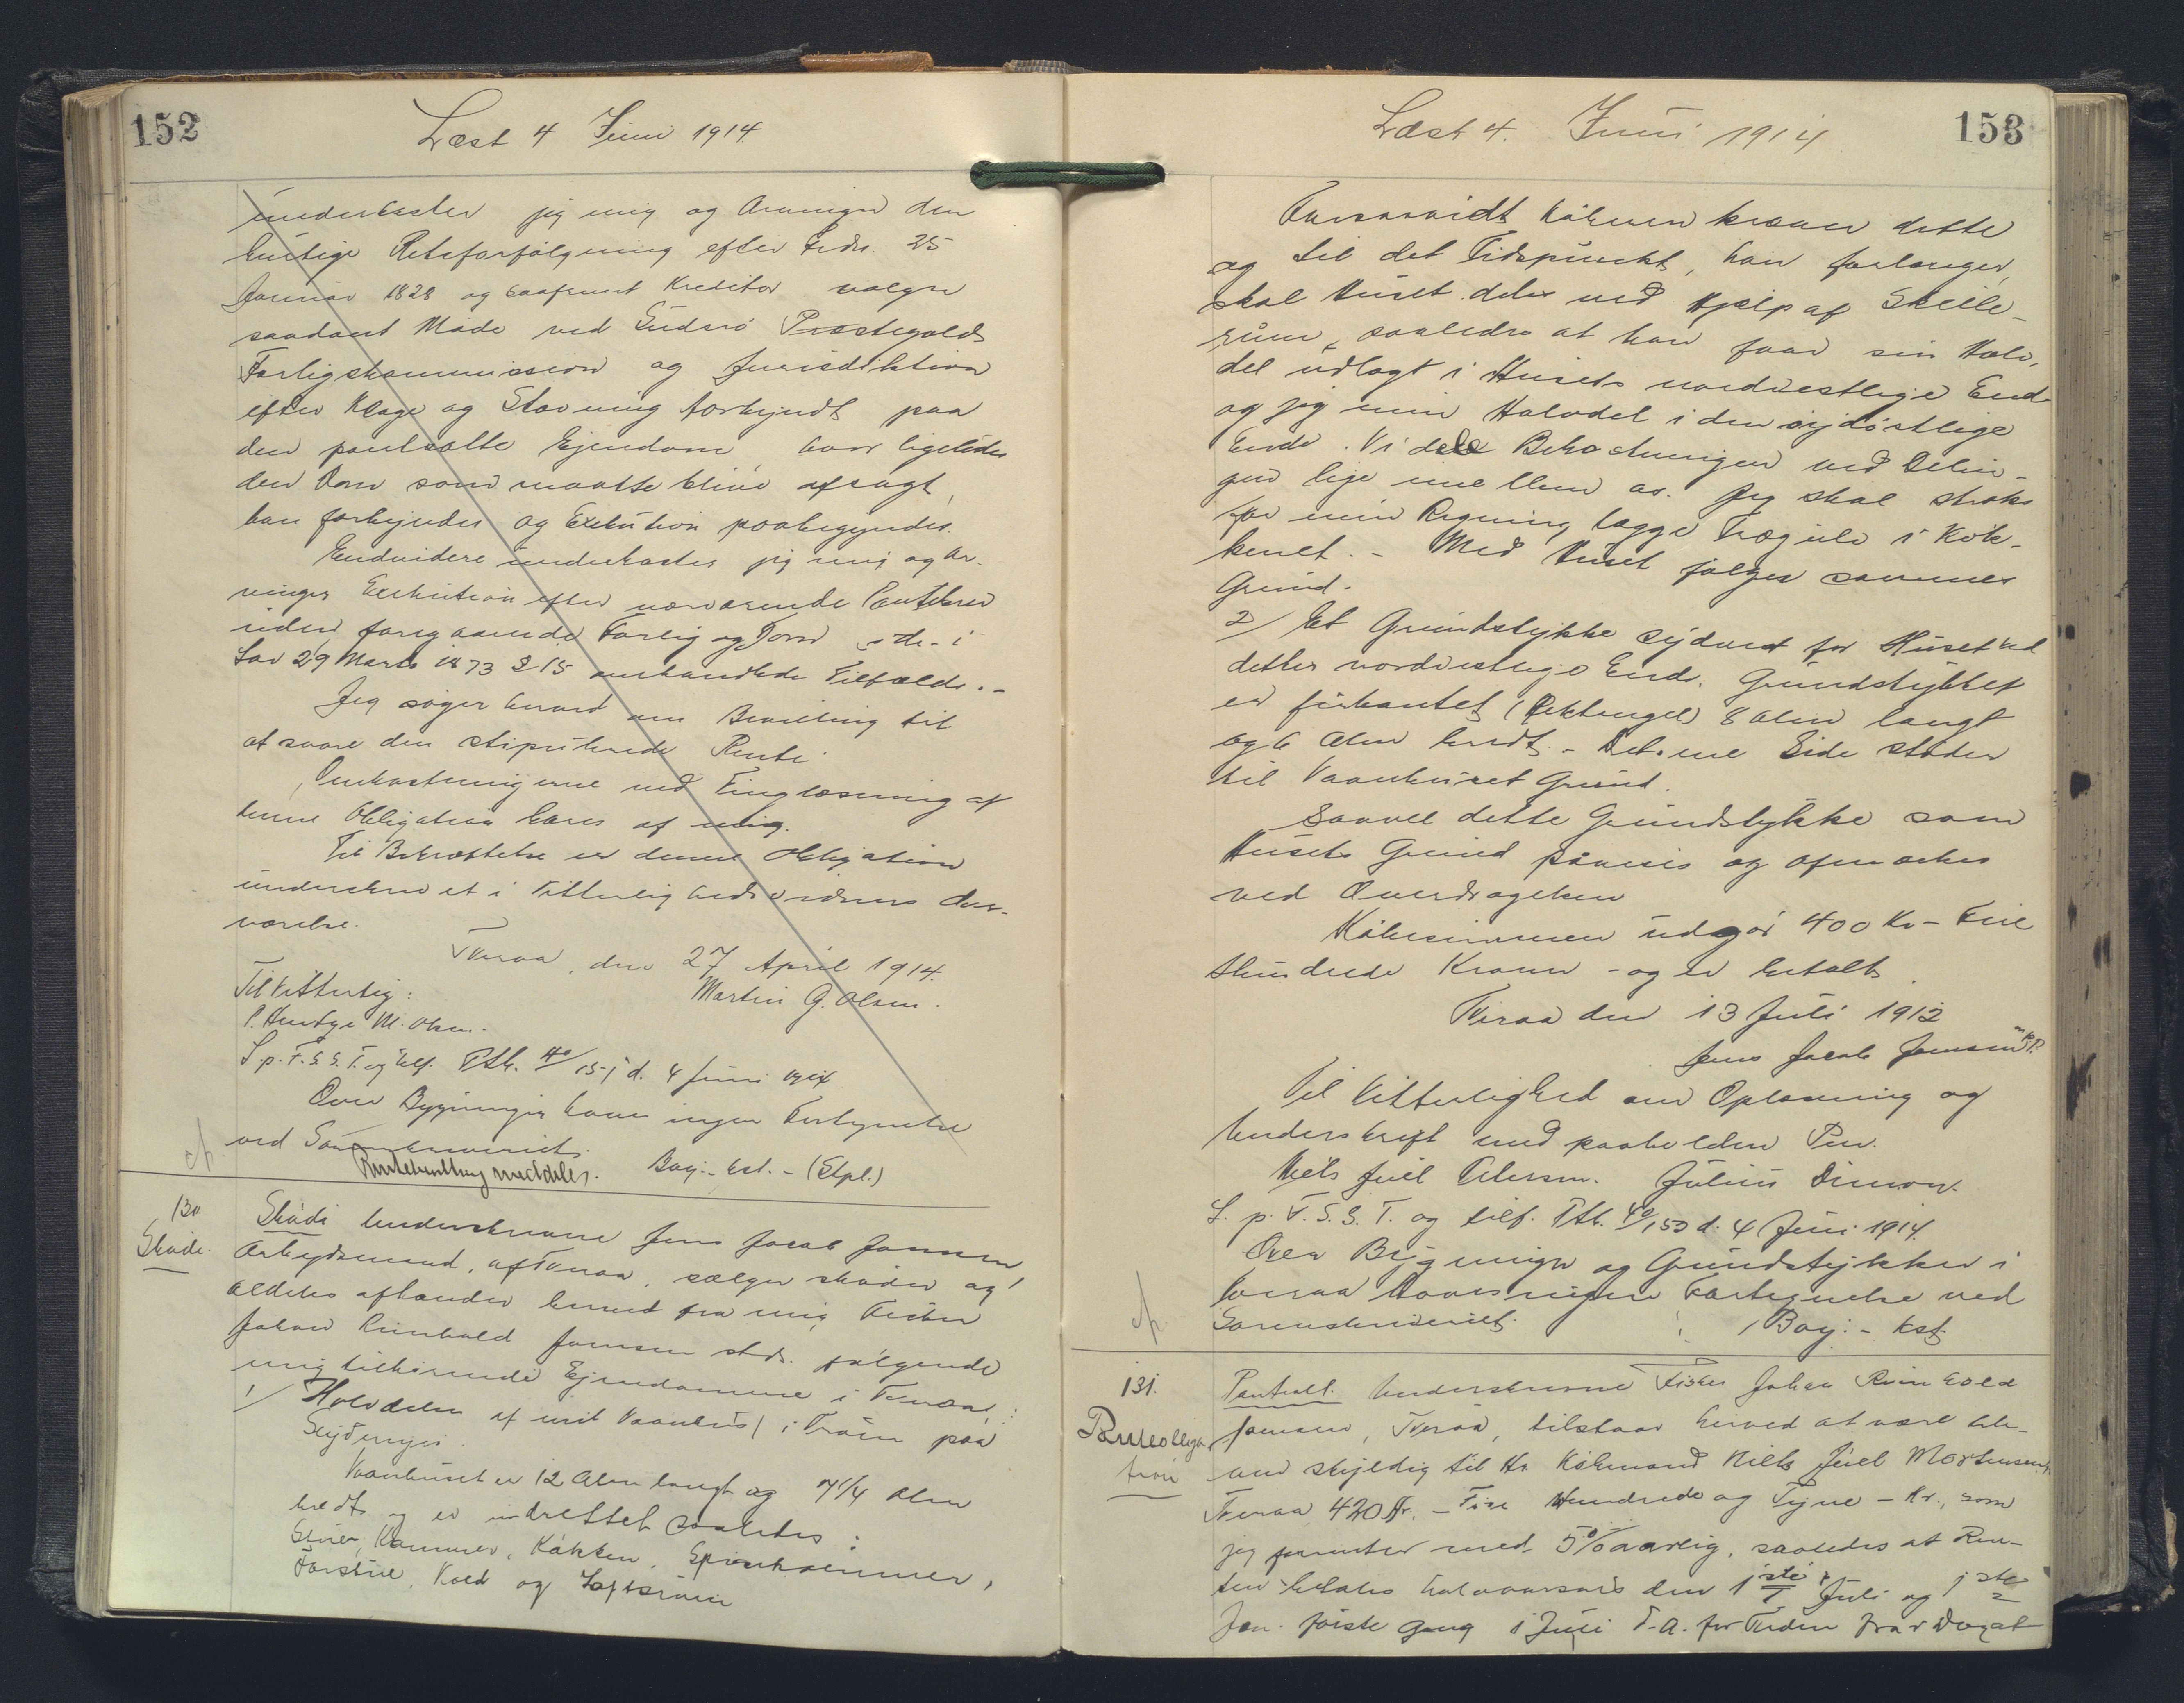 152
Læst 4 Juni 1914.
underkaster jeg mig og Arvinger den
hurtige Retsforfølgning efter Frdn. 25
Januar 1828 og saafremt Kreditor vælger
saadant Maade ved Suderø Præstegjælds
Forligskommission og Jurisdiktion
efter Klage og Stævning forkyndt paa
den pantsatte Ejendom, hvor ligeledes
den Dom som maatte blive afsagt,
kan forkyndes og Exekution paabegyndes.
Endvidere underkaster jeg mig og Ar-
vinger Exekution efter nærværende Pantebrev
uden foregaaende Forlig og Dom i de i
Lov 29 Marts 1873 § 15 omhandlede Tilfælde. -
Jeg søger herved om Bevilling til
at svare den stipulerede Rente.
Omkostningerne ved Tinglæsning af
denne Obligation bæres af mig.
Til Bekræftelse er denne Obligation
underskrevet i Vitterlighedsvidners Over-
værelse.
Tveraa, den 27 April 1914.
Martin G. Olsen.
Til Vitterlig:
P. Hentze M. Olsen.
L. p. F. S. S. T. og tilf. Ptb. 40/151 d. 4 Juni 1914
Over Bygninger haves ingen Fortegnelse
ved Sorenskriveriet.
Rentebevilling meddeles. Bay: - kst. - (Stpl.)
130
Skøde.
Skøde Underskrevne Jens Jacob Jansen
Arbejdsmand, af Tveraa, sælger skøder og
aldeles afhænder herved fra mig Fisker
Johan Reinhold Jansen stds. følgende
mig tilhørende Ejendomme i Tveraa:
1/ Halvdelen af mit Vaanhus i Traun paa
Vaanhuset er 12 Alen langt og 7 1/4 Alen
bredt og er indrettet saaledes:
Stue, Kammer, Køkken, Spisekammer,
Forstue, Kold og Loftsrum
153
Læst 4. Juni 1914
Forsaavidt Køberen kræver dette
og til det Tidspunkt, han forlanger,
skal Huset deles ved Hjælp af Skille-
rum, saaledes at han faar sin Halv-
del udlagt i Husets nordvestlige Ende
og jeg min Halvdel i den sydøstlige
Ende. Vi dele Bekostningen ved Delin-
gen lige imellem os. Jeg skal straks
for min Regning lægge Trægulv i Køk-
kenet. - Med Huset følger sammes
Grund.
2/ Et Grundstykke sydvest for Huset ved
dettes nordvestlige Ende. Grundstykket
er firkantet (Rektangel) 8 Alen langt
og 6 Alen bredt. - Det ene Side støder
til Vaanhuset Grund.
Saavel dette Grundstykke som
Husets Grund paavises og afmærkes
ved Overdragelsen
Købesummen udgør 400 Kr - Fire
Hundrede Kroner - og er betalt
Tveraa den 13 Juli 1912
Jens Jacob Jansen m.p.P.
Til Vitterlighed om Oplæsning og
Underskrift med paaholden Pen.
Niels Juel Petersen. Julius Dimon.
L. p. F. S. S. T. og tilf. Ptb. 40/150 d. 4 Juni 1914.
Over Bygninger og Grundstykker i
Tveraa haves ingen Fortegnelse ved
Sorenskriveriet. Bay: - kst.
131.
Panteobliga-
tion
Pantobl. Underskrevne Fisker Johan Reinhold
Jansen, Tveraa, tilstaar herved at være ble-
ven skyldig til Hr Købmand Niels Juel Mortensen,
Tveraa 420 Kr. - Fire Hundrede og Tyve - Kr., som
jeg forrenter med 5% aarlig, saaledes at Ren-
ten betales halvaarsvis den 1ste Juli og 1ste
Jan. første Gang 1 Juli d. A. for Tiden fra Dags at